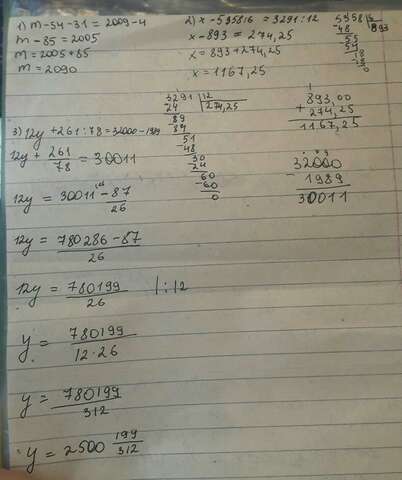 1) m - 54 - 31 = 2009 - 4
m - 85 = 2005
m = 2005 + 85
m = 2090
2) x - 5358:6 = 3291:12
x - 893 = 274,25
x = 893 + 274,25
x = 1167,25
5358 6
48 893
55
54
18
18
0
3291 12
24 274,25
89
84
51
48
30
24
60
60
0
893,00
+ 274,25
1167,25
3) 12y + 261:78 = 32000 - 1989
12y + 261/78 = 30011
12y = 30011 - 87/26
12y = 780286 - 87/26
12y = 780199/26 | :12
y = 780199/12·26
y = 780199/312
y = 2500 199/312
32000
- 1989
30011